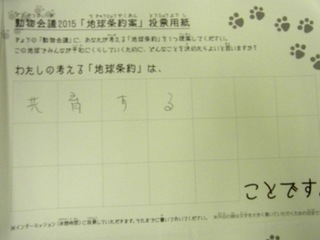 動物会議2015「地球条約案」投票用紙
きょうの「動物会議」に、あなたが考える「地球条約」を1つ提案してください。
この地球でみんなが平和にくらしていくために、どんなことを決めたらよいと思いますか?
わたしの考える「地球条約」は、
共育する
ことです